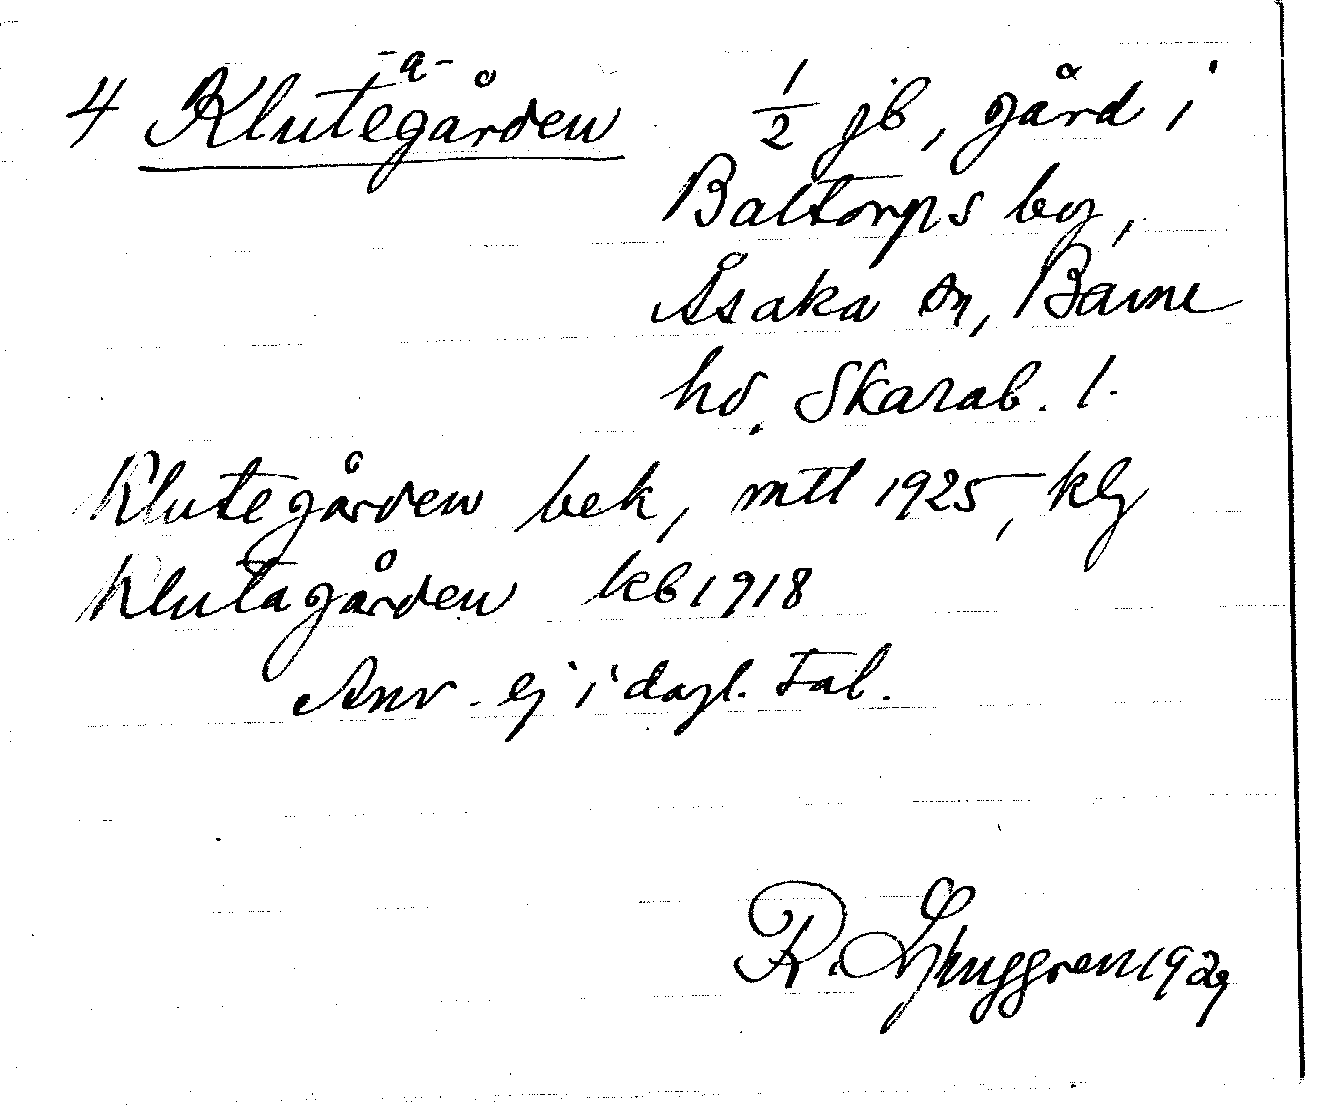 -a-
4 Klutegården 1/2 jb, gård i
Baltorps by,
Åsaka sn, Barne
hd. Skarab. l.
Klutegården bek, mtl 1925, klg
Klutagården kb 1918
Anv. ej i dagl. tal.
R. Ljunggren 1929